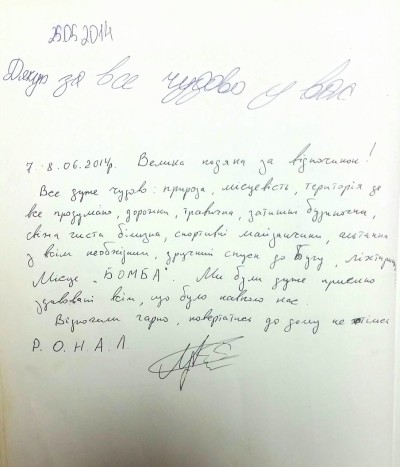 25.05.2014
Дякую за все чудово у вас
7-8.06.2014р. Велика подяка за відпочинок!
Все дуже чудово: природа, місцевість, територія де
все продумано, доріжки, травичка, затишні будиночки,
свіжа чиста білизна, спортивні майданчики, альтанки
з всім необхідним, зручний спуск до Бугу, ліхтарики
Місце "БОМБА". Ми були дуже приємно
здивовані всім, що було навколо нас.
Відпочили гарно, повертатись до дому не хотілося
Р. О. Н. А. Л.